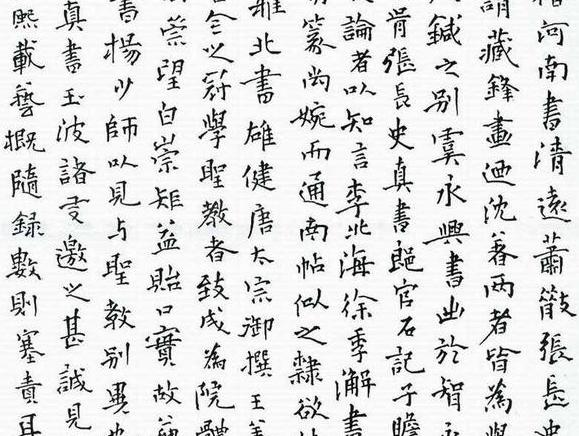 河南書清遠蕭散張長史
謂藏鋒畫迺沈著兩者皆為學
鍼之別虞永興書出於智永
肯張長史真書郎官石記子瞻
論者以知言李北海徐季澥書
篆尚婉而通南帖似之隸欲
北書雄健唐太宗御撰王
令以學聖教者致成為院體
崇望白崇矩益貽口實故
書楊少師以見与聖教別異
真書玉波諸叟邀之甚誠見
熙載藝概隨録數則塞責耳